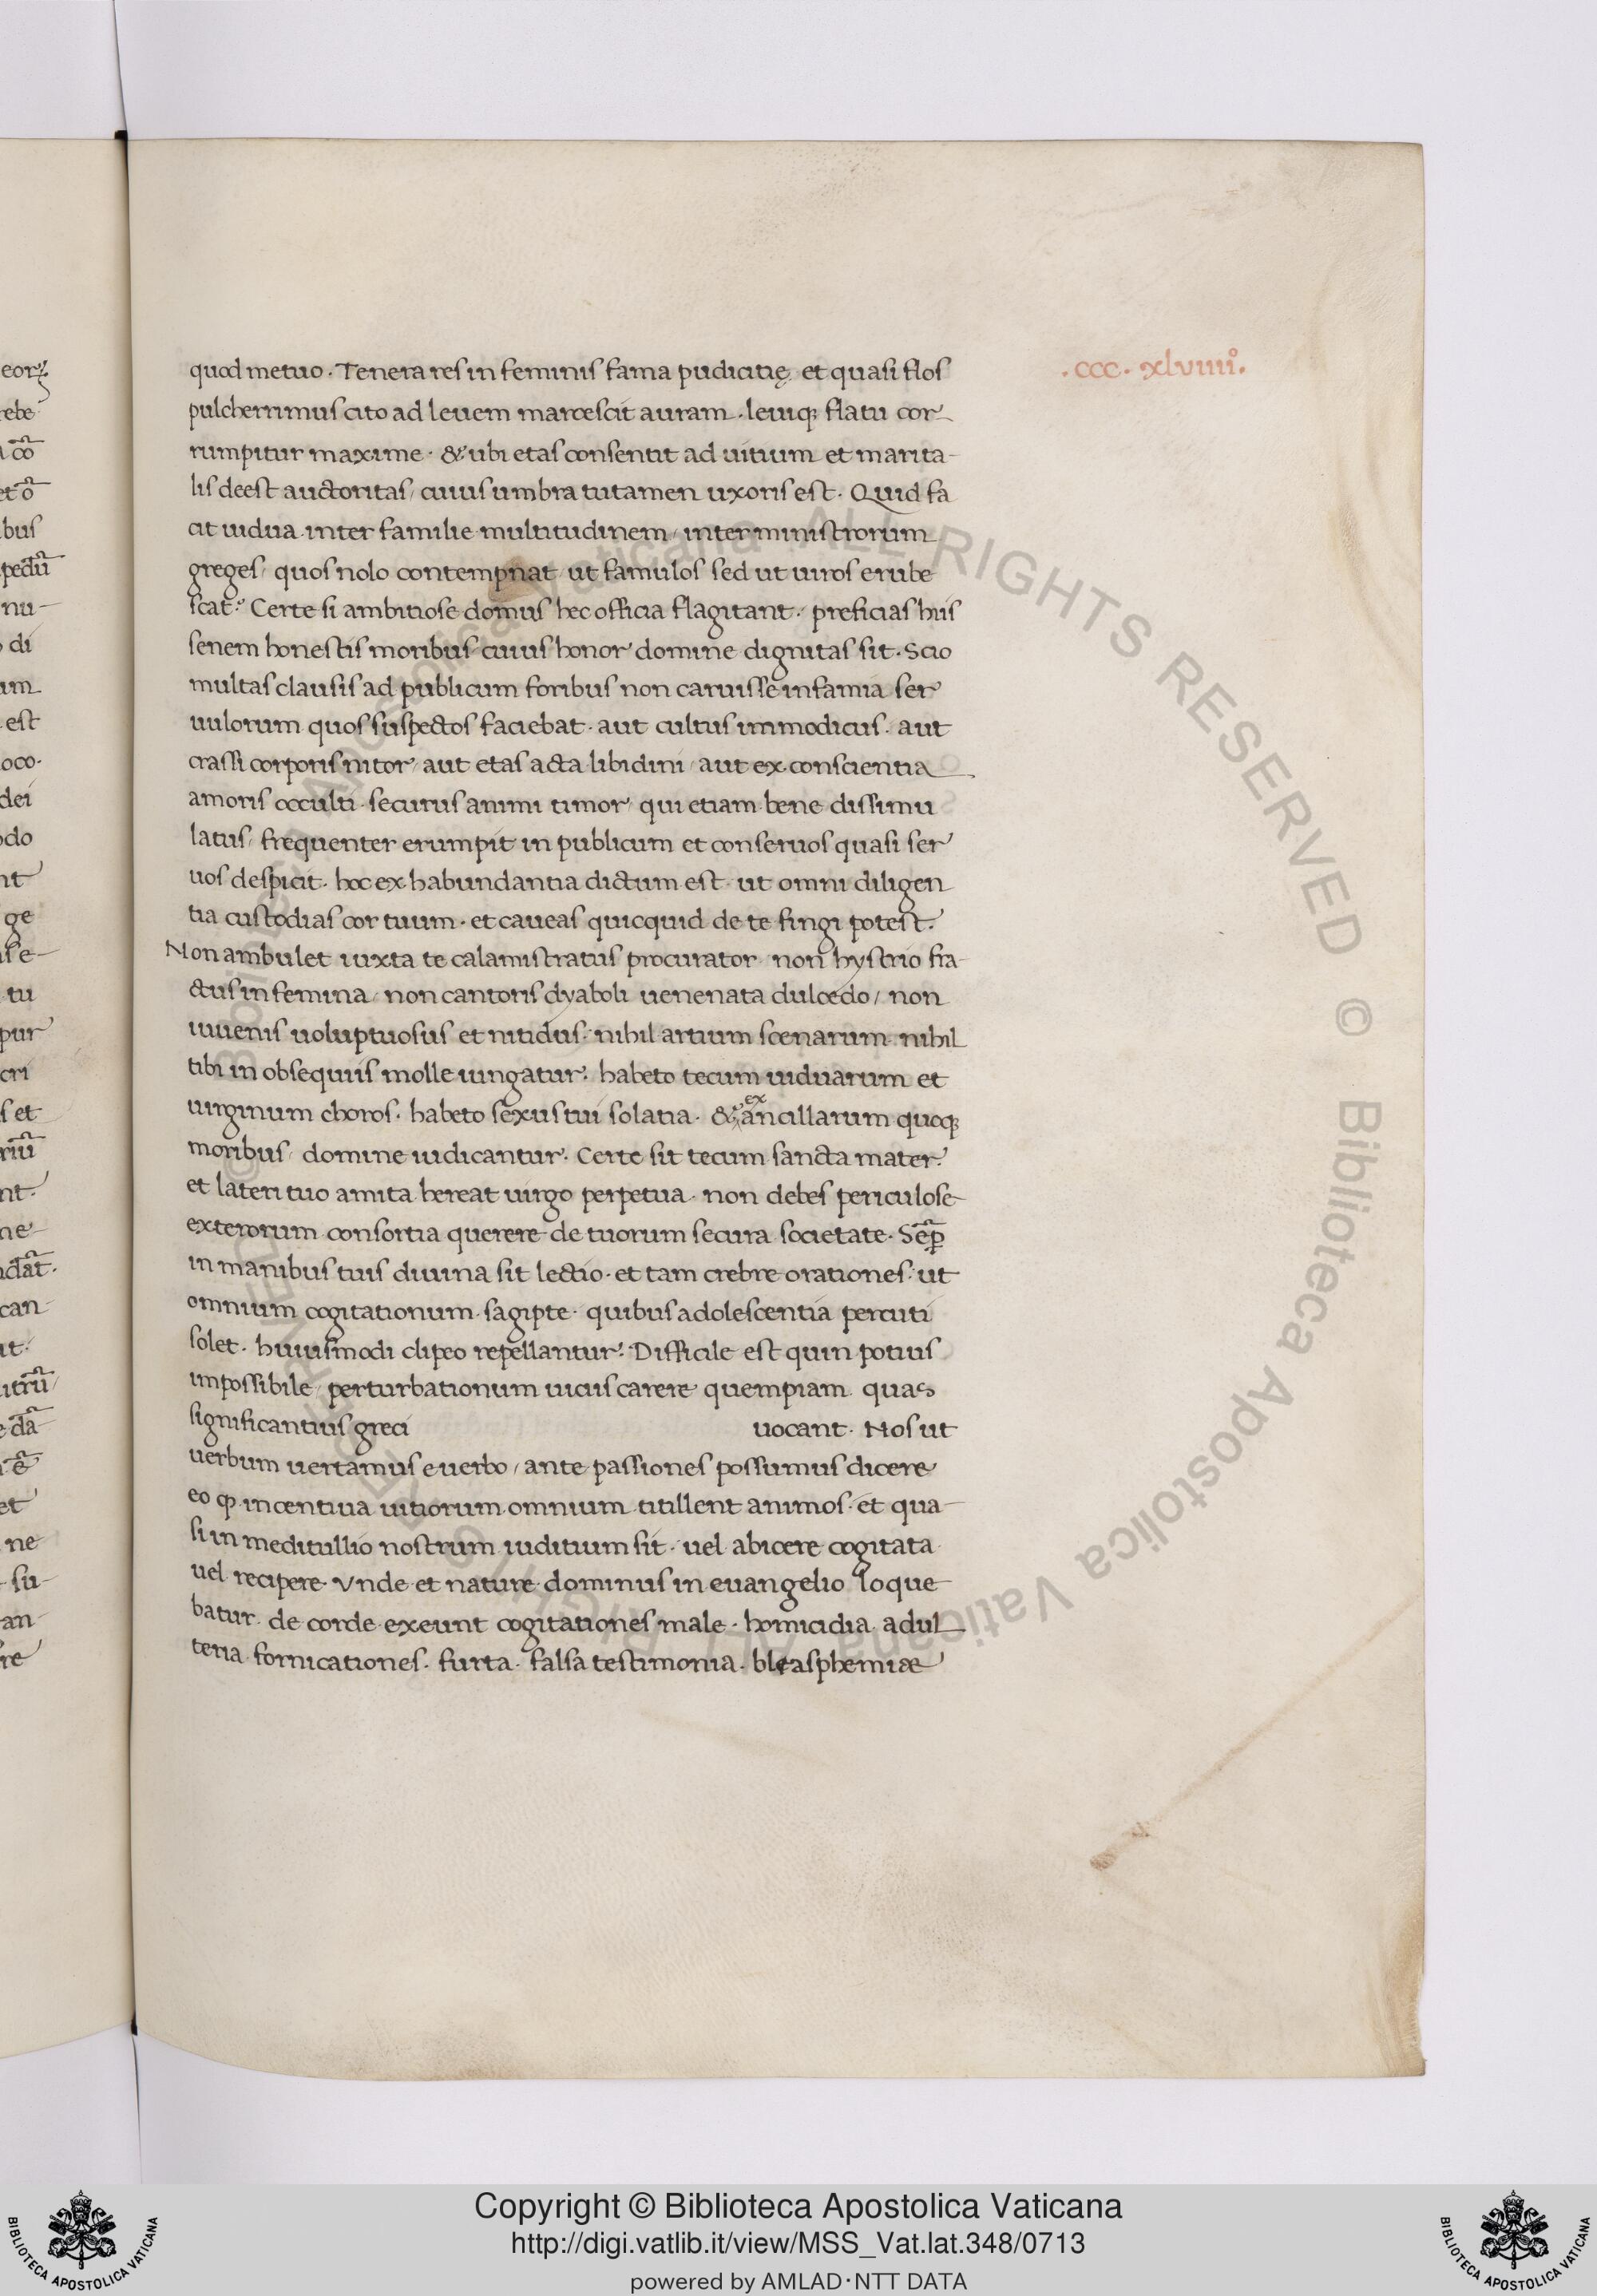 .ccc. xlviiii°.
quod metuo. Tenera res in feminis fama pudicitię et quasi flos
pulcherrimus cito ad levem marcescit auram. leuiq; flatu cor
rumpitur maxime. & ubi etas consentit ad uitium et marita-
lis deest auctoritas, cuius umbra tutamen uxoris est. Quid fa
cit uidua inter familie multitudinem, inter ministrorum
greges, quos nolo contempnat ut famulos sed ut uiros erube
scat. Certe si ambitiose domus hec officia flagitant. preficias hiis
senem honestis moribus cuius honor domine dignitas sit. Scio
multas clausis ad publicum foribus non caruisse infamia ser
uulorum quos suspectos faciebat. aut cultus immodicus. aut
crassi corporis nitor, aut etas acta libidini, aut ex conscientia
amoris occulti securus animi timor, qui etiam bene dissimu
latus, frequenter erumpit in publicum et conseruos quasi ser
uos despicit. hoc ex habundantia dictum est ut omni diligen
tia custodias cor tuum. et caveas quicquid de te fingi potest.
Non ambulet iuxta te calamistratus procurator non hystrio fra-
ctus in femina, non cantoris dyaboli uenenata dulcedo, non
iuuenis uoluptuosus et nitidus. nihil artium scenarum nihil
tibi in obsequiis molle iungatur. habeto tecum uiduarum et
uirginum choros. habeto sexus tui solatia. & ex ancillarum quoq;
moribus, domine iudicantur. Certe sit tecum sancta mater.
et lateri tuo amita hereat uirgo perpetua. non debes periculose
exterorum consortia querere de tuorum secura societate. Sep̄
in manibus tuis diuina sit lectio. et tam crebre orationes. ut
omnium cogitationum sagipte quibus adolescentia percuti
solet. huiusmodi clipeo repellantur. Difficile est quin potius
impossibile, perturbationum iiiciis carere quempiam quas
significantius greci uocant. Nos ut
uerbum uertamus e uerbo, ante passiones possumus dicere
eo ꝙ incentiua uitiorum omnium titillent animos. et qua-
si in meditullio nostrum iuditium sit. uel abicere cogitata
uel recipere. Vnde et nature dominus in euangelio loque
batur. de corde exeunt cogitationes male. homicidia adul
teria fornicationes. furta. falsa testimonia. bleasphemiae
Copyright © Biblioteca Apostolica Vaticana
http://digi.vatlib.it/view/MSS_Vat.lat.348/0713
powered by AMLAD·NTT DATA